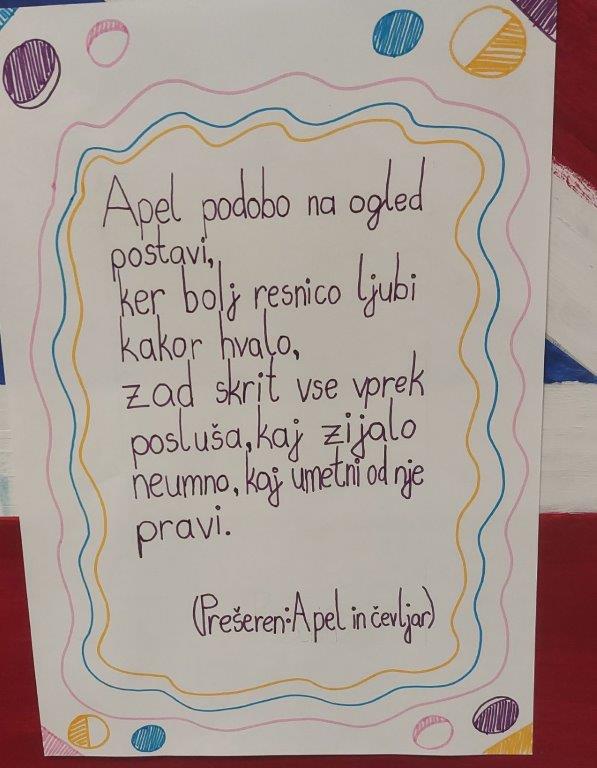 Apel podobo na ogled
postavi,
ker bolj resnico ljubi
kakor hvalo,
zad skrit vse vprek
posluša, kaj zijalo
neumno, kaj umetni od nje
pravi.
(Prešeren: Apel in čevljar)